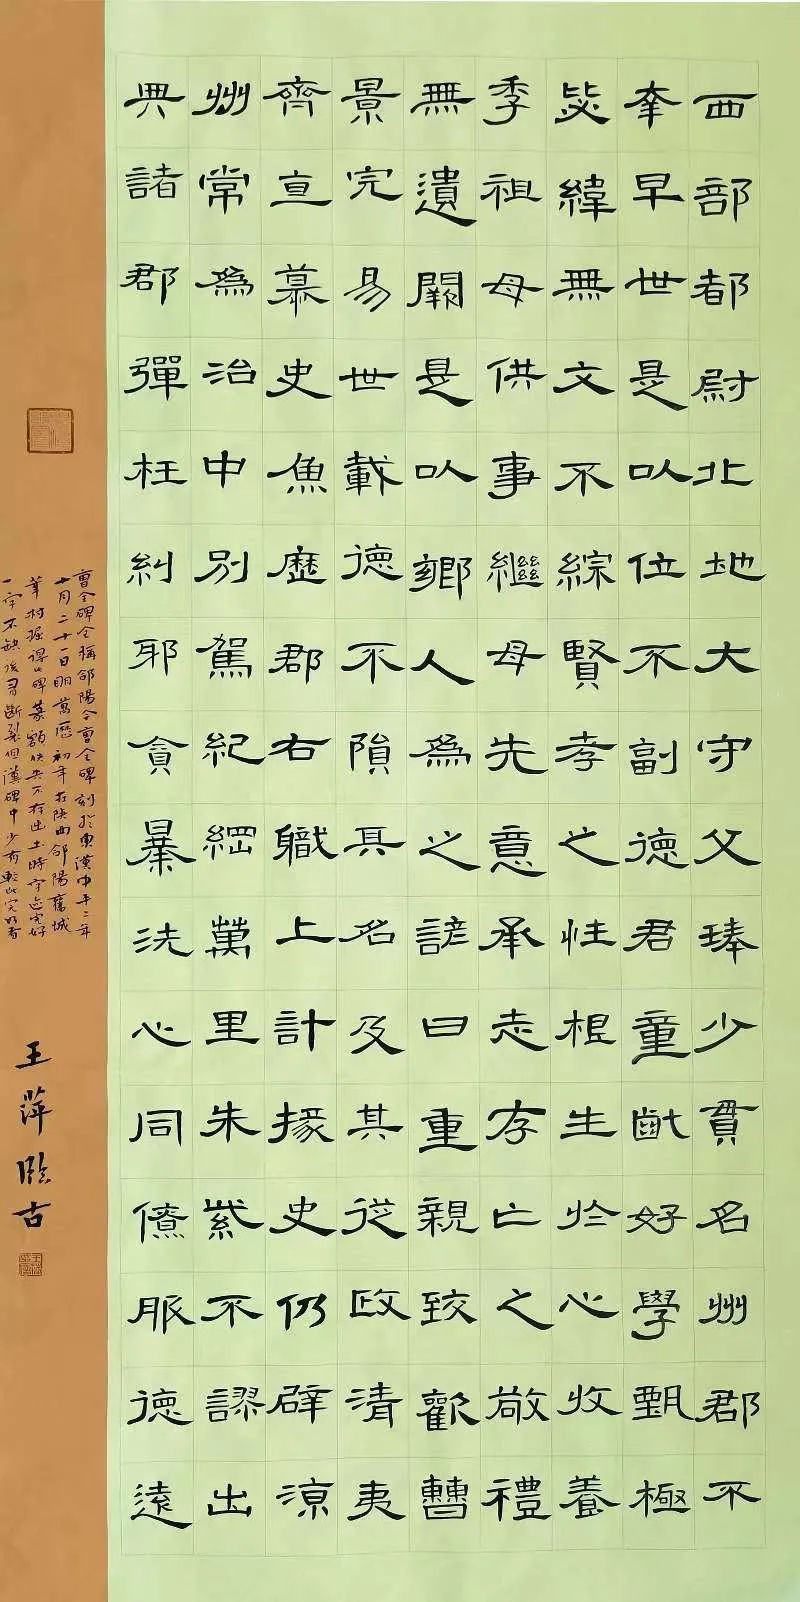 西部都尉北地大守父琫少貫名州郡不
幸早世是以位不副德君童齔好學甄極
毖緯無文不綜賢孝之性根生於心收養
季祖母供事繼母先意承志存亡之敬禮
無遺闕是以鄉人為之諺曰重親致歡曹
景完易世載德不隕其名及其從政清夷
齊直慕史魚歷郡右職上計掾史仍辟涼
州常為治中別駕紀綱萬里朱紫不謬出
典諸郡彈枉糾邪貪暴洗心同僚服德遠
曹全碑全稱郃陽令曹全碑刻於東漢中平二年
十月二十一日明萬歷初年在陝西郃陽舊城
莘村掘得此碑篆額佚失不存出土時字跡完好
一字不缺後有斷裂但漢碑中少有較此完好者
王萍臨古